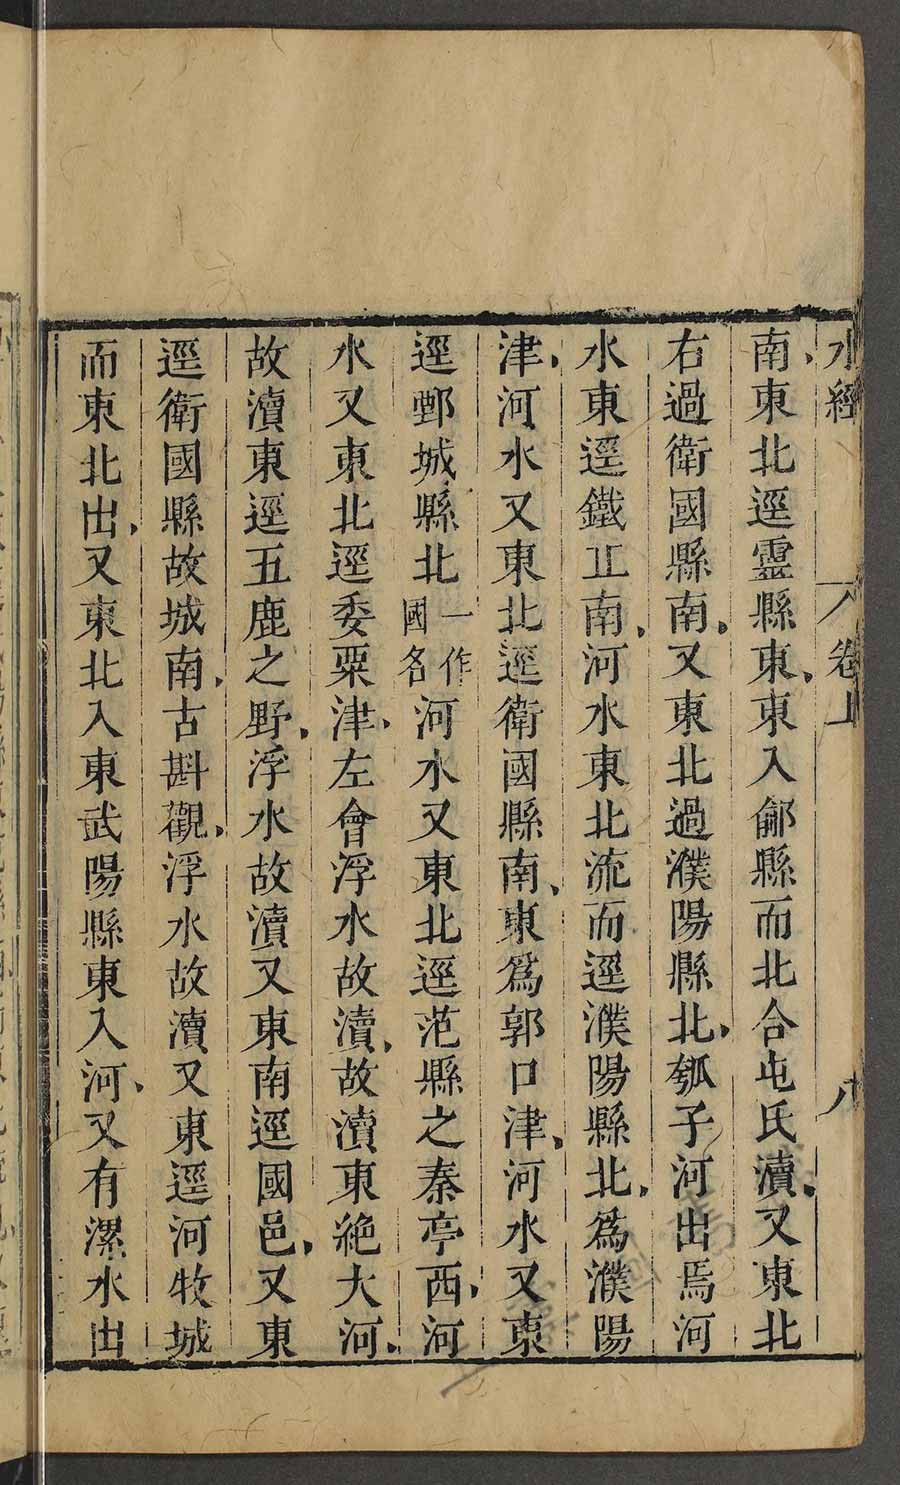 水經 卷上 八
南東北逕靈縣東東入鄃縣而北合屯氏瀆又東北
右過衛國縣南又東北過濮陽縣北瓠子河出焉河
水東逕鐵丘南河水東北流而逕濮陽縣北為濮陽
津河水又東北逕衛國縣南東為郭口津河水又東
逕鄄城縣北一作國名河水又東北逕范縣之秦亭西河
水又東北逕委粟津左會浮水故瀆故瀆東絶大河
故瀆東逕五鹿之野浮水故瀆又東南逕國邑又東
逕衛國縣故城南古斟觀浮水故瀆又東逕河牧城
而東北出又東北入東武陽縣東入河又有漯水出